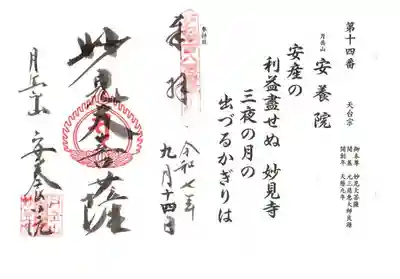 第十四番
月岳山 安養院 天台宗
御本尊 妙見大菩薩
開基 元三慈恵大師良源
安産の
利益盡せぬ 妙見寺
三夜の月の
出づるかぎりは
奉拝
令和七年
九月十四日
妙見大菩薩
月岳山 安養院